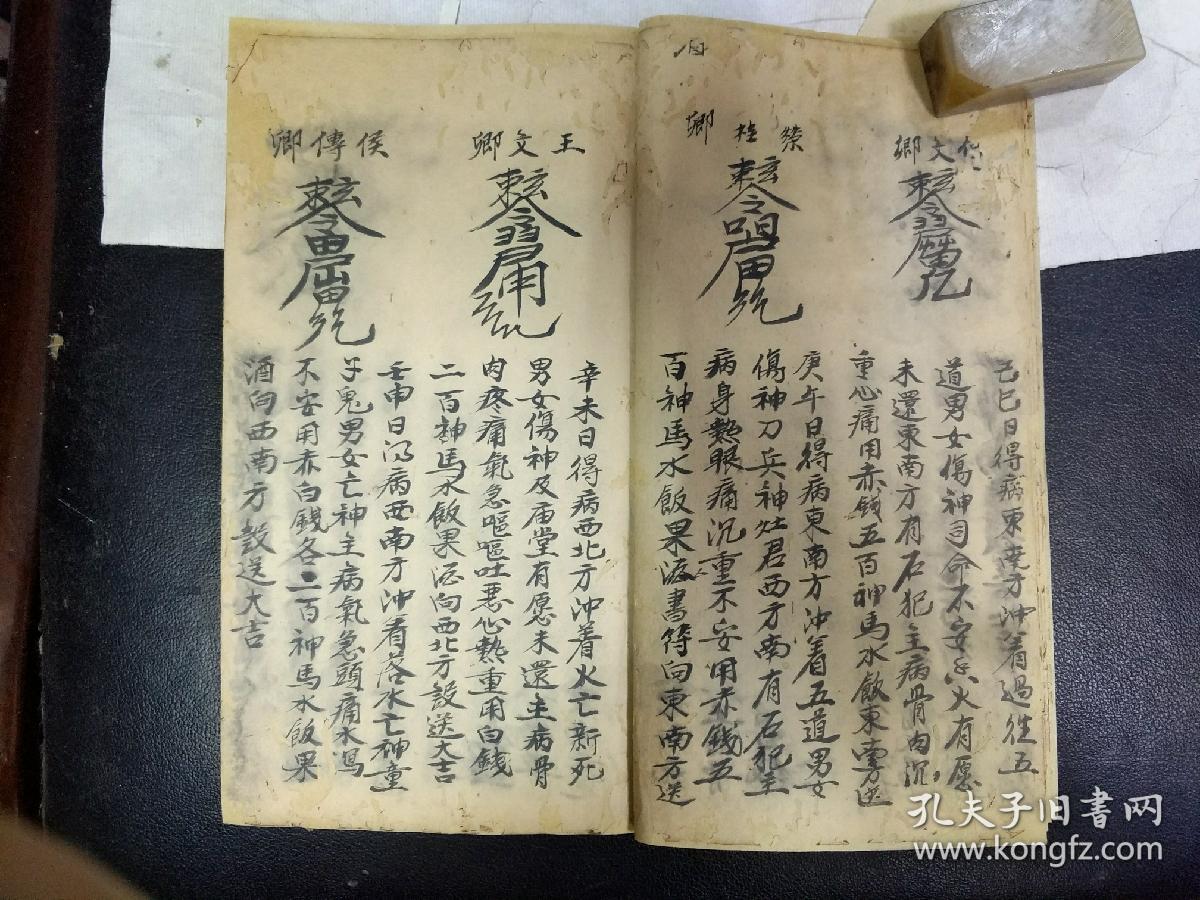 文卿
己巳日得病東南方沖着過往五
道男女傷神司命不安香火有愿
未還東南方有石犯主病骨肉沉
重心痛用赤钱五百神馬水飯東南方送
卿
庚午日得病東南方沖着五道男女
傷神刀兵神灶君西方南有石犯主
病身熱眼痛沉重不安用赤钱五
百神馬水飯果酒書符向東南方送
王文卿
辛未日得病西北方沖着火亡新死
男女傷神及庙堂有愿未還主病骨
肉疼痛氣急嘔嘔吐惡心熱重用白錢
二百神馬水飯果酒向西北方設送大吉
侯傳卿
壬申日得病西南方沖着落水亡神童
子鬼男女亡神主病氣急頭痛水瀉
不安用赤白錢各二百神馬水飯果
酒向西南方設送大吉
孔夫子旧书网
www.kongfz.com